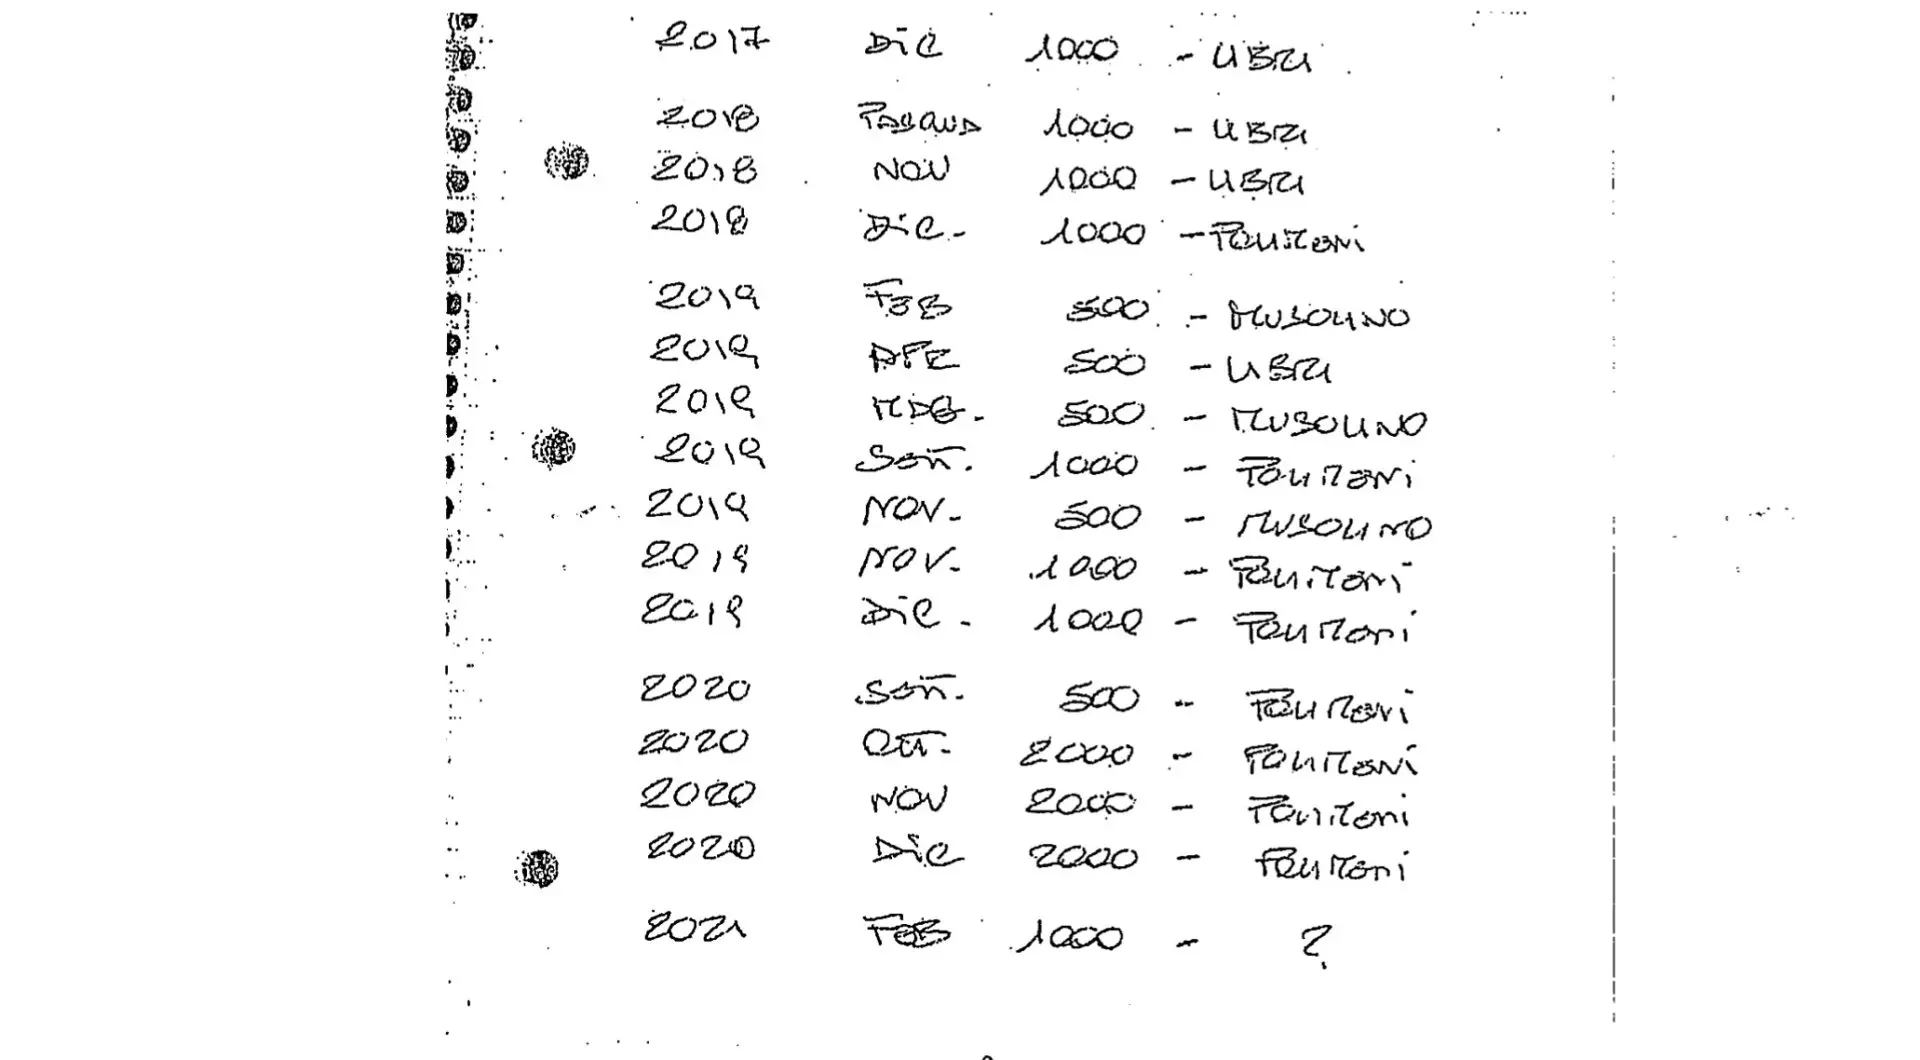 2017 DIC 1000 - LIBRI
2018 PASQUA 1000 - LIBRI
2018 NOV 1000 - LIBRI
2018 DIC- 1000 - POLIMENI
2019 FEB 500 - MUSOLINO
2019 APR 500 - LIBRI
2019 MAG. 500 - MUSOLINO
2019 SETT. 1000 - POLIMENI
2019 NOV- 500 - MUSOLINO
2019 NOV- 1000 - POLIMENI
2019 DIC- 1000 - POLIMENI
2020 SETT. 500 - POLIMENI
2020 OTT. 2000 - POLIMENI
2020 NOV 2000 - POLIMENI
2020 DIC 2000 - POLIMENI
2021 FEB 1000 - ?